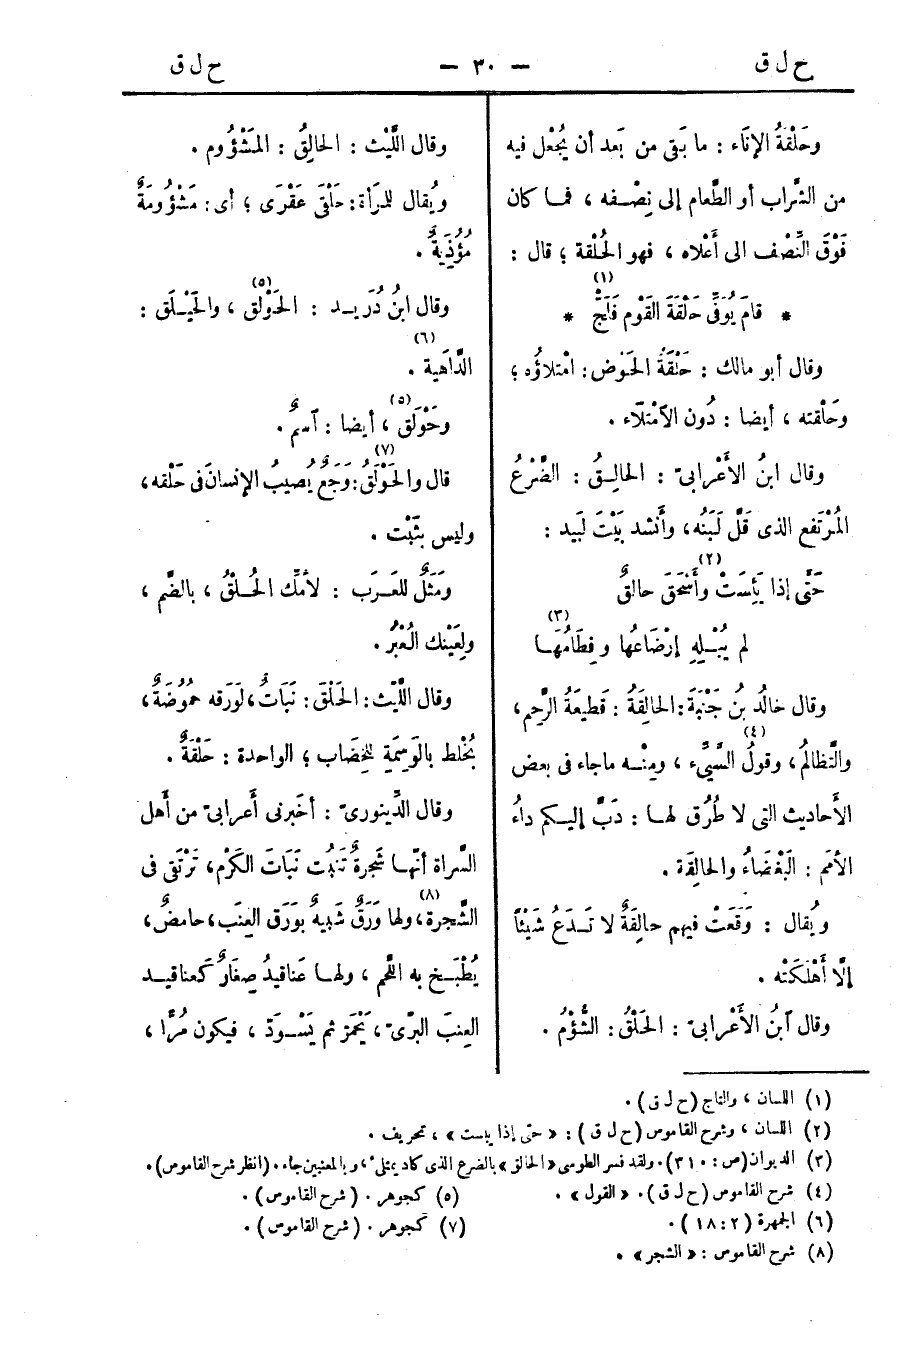 ح ل ق
— ٣٠ —
ح ل ق
وحَلْقةُ الإنَاء : ما بَقى من بَعد أن يُجْعل فيه
من الشَّراب أو الطَّعام إلى نِصْـفه ، فـا كان
فَوْقَ النِّصْف الى أَعْلاه ، فهو الحُلْقة ؛ قال :
* قامَ يُوَفِّى حَلْقَةَ القَوْم فَلَجْ (١) *
وقال أبو مالك : حَلْقَةُ الحَوْض : امْتلاؤُه ؛
وحَلْقته ، أيضا : دُون الاَمْتلَاء .
وقال ابنُ الأَعْرابىّ : الحالِـقُ : الضَّرْعُ
المُرْتفع الذى قَلَّ لَبَنُه، وأَنشد بَيْتَ لَبِيد :
حَتَّى إذا يَئِسَتْ وأَسْحَقَ حالقٌ (٢)
لم يُبْـلِهِ إرْضَاعُها وفِطَامُهَـا (٣)
وقال خالدُ بنُ جَنْبَةَ : الحالِقَةُ : قَطيعَةُ الرَّحِم،
والتَّظالمُ، وقولُ السَّيِّء (٤) ، ومِنْـه ماجاء فى بعض
الأَحاديث التى لا طُرُق لهـا : دَبَّ إليـكم داءُ
الأمَم : البَغْضَاءُ والحالِقة .
ويُقال : وَقَعَتْ فيهم حالِقَةٌ لا تَـدَعُ شَيْئًا
إلَّا أَهْلَكَتْه .
وقال اَبنُ الأَعْرابىّ : الحَلْقُ : الشُّؤْمُ .
وقال اللَّيْث : الحالِقُ : المَشْؤُوم .
ويُقال للمَرأة : حَلْقَى عَقْرَى ؛ أى : مَشْؤُومَةٌ
مُؤْذِيَةٌ .
وقال ابنُ دُرَيـد : الحَوْلق (٥) ، والحَيْـلَق :
الدَّاهية (٦) .
وحَوْلَق (٥) ، أيضا : اَسمٌ .
قال والحَوْلَقُ (٧) : وَجَعٌ يُصيبُ الإنسانَ فى حَلْقه،
وليس بثَبْت .
ومَثَلٌ للعَـرَب : لأُمّك الحُـلْقُ ، بالضَّم ،
ولِعَيْنك العُبْرُ .
وقال اللَّيْث : الحَلْقَ : نَبَاتٌ، لوَرَقه حُمُوضَةٌ،
يُخْلط بالوَسِمَةِ للخِضَاب ؛ الواحدة : حَلْقَةٌ .
وقال الدِّينورىّ : أخبرنى أَعرابىّ من أَهل
السَّراة أنّهـا شَجرةٌ تَنْبُت نَبَاتَ الكَرْم، تَرْتَقى فى
الشَّجرة (٨)، ولها وَرَقٌ شَبيهٌ بوَرَق العِنَب، حامضٌ،
يُطْبَـخ به اللحم ، ولهـا عَناقيدُ صِغَارٌ كعناقيـد
العِنبَ البَرّىّ ، يَحْمَرّ ثم يَسْـوَدّ ، فيكون مُرًّا ،
(١) اللسان ، والتاج (ح ل ق) .
(٢) اللسان ، وشرح القاموس (ح ل ق) : « حتى إذا يبست » ، تحريف .
(٣) الديوان (ص : ٣١٠). ولقد فسر الطوسى «الحالق» بالضرع الذى كاد يمتلئ ، وبالمعنيين جاء. (انظر شرح القاموس).
(٤) شرح القاموس (ح ل ق). « القول » .
(٥) كجوهر . (شرح القاموس) .
(٦) الجمهرة (٢ : ١٨) .
(٧) كجوهر . (شرح القاموس) .
(٨) شرح القاموس : « الشجر » .